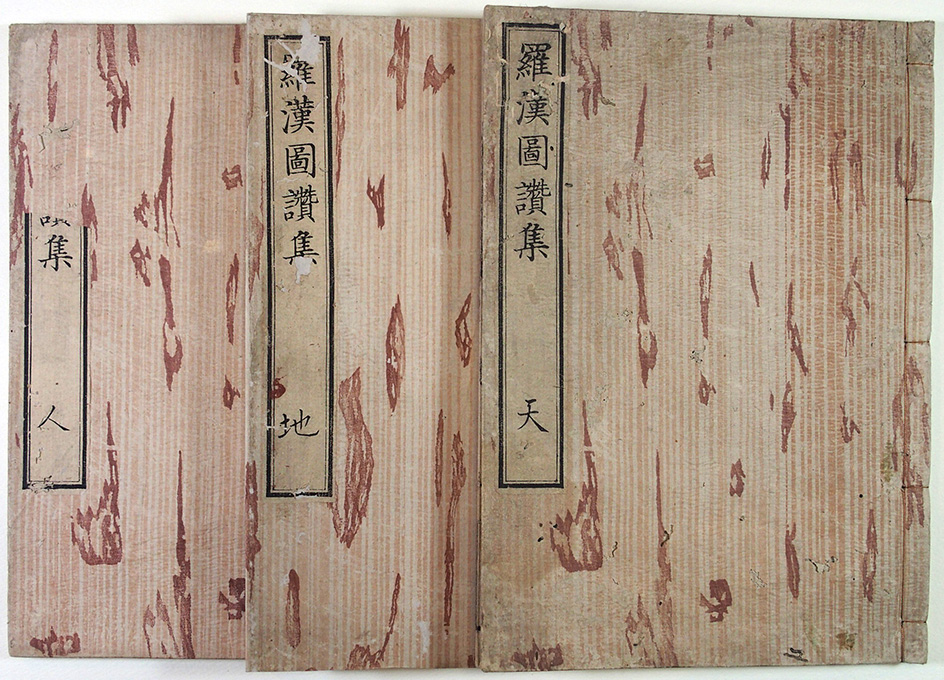 羅漢圖讚集 天
羅漢圖讚集 地
集 人